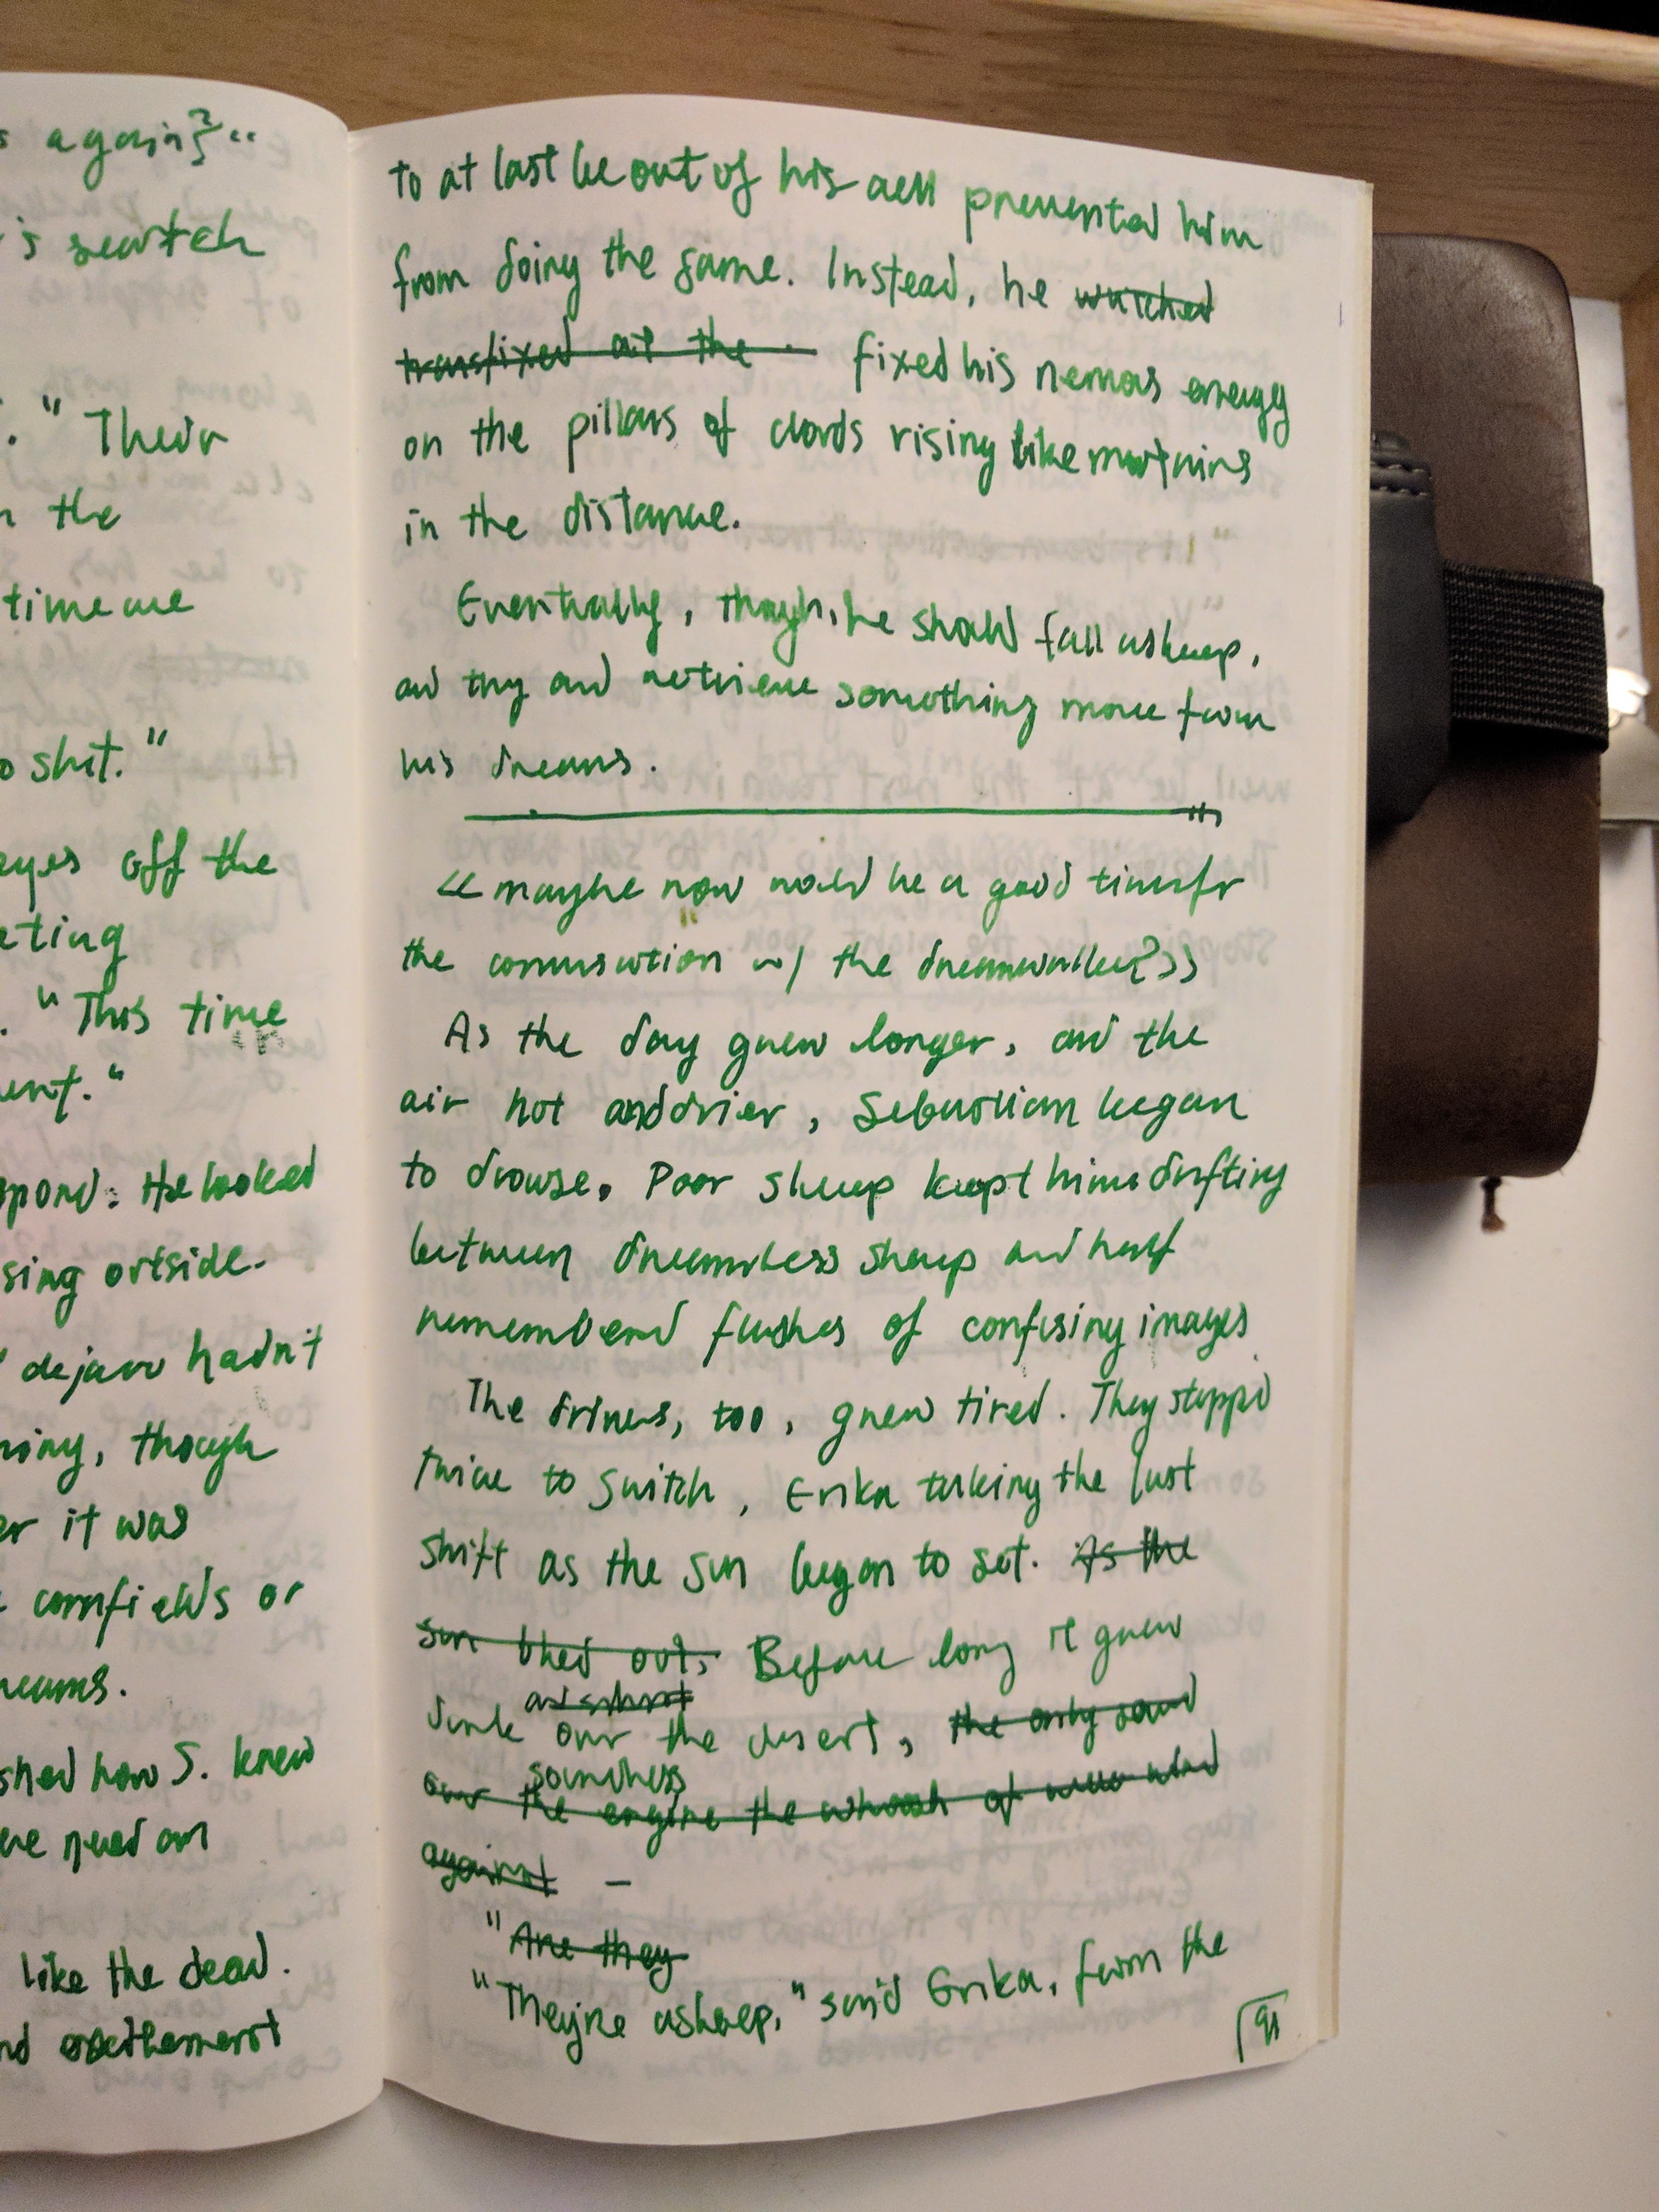 s again}"
's search
." Their
n the
time are
o shit."
eyes off the
eting
. "This time
ent."
spond. He looked
sing outside.
dejavu hadn't
ning, though
er it was
cornfields or
reams.
shed how S. knew
we need an
like the dead.
nd excitement
to at last be out of his cell prevented him
from doing the same. Instead, he watched
transfixed at the fixed his nervous energy
on the pillars of clouds rising like mountains
in the distance.
Eventually, though, he should fall asleep,
and try and retrieve something more from
his dreams.
<<maybe now would be a good time for
the conversation w/ the dreamwalker?>>
As the day grew longer, and the
air hot and drier, Sebastian began
to drowse. Poor sleep kept him drifting
between dreamless sleep and half
remembered flashes of confusing images
The drivers, too, grew tired. They stopped
twice to switch, Erika taking the last
shift as the sun began to set. As the
sun bled out, Before long it grew
and silent
dark over the desert, the only sound
soundless
over the engine the whoosh of wind
against –
"Are they
"They're asleep," said Erika, from the
91